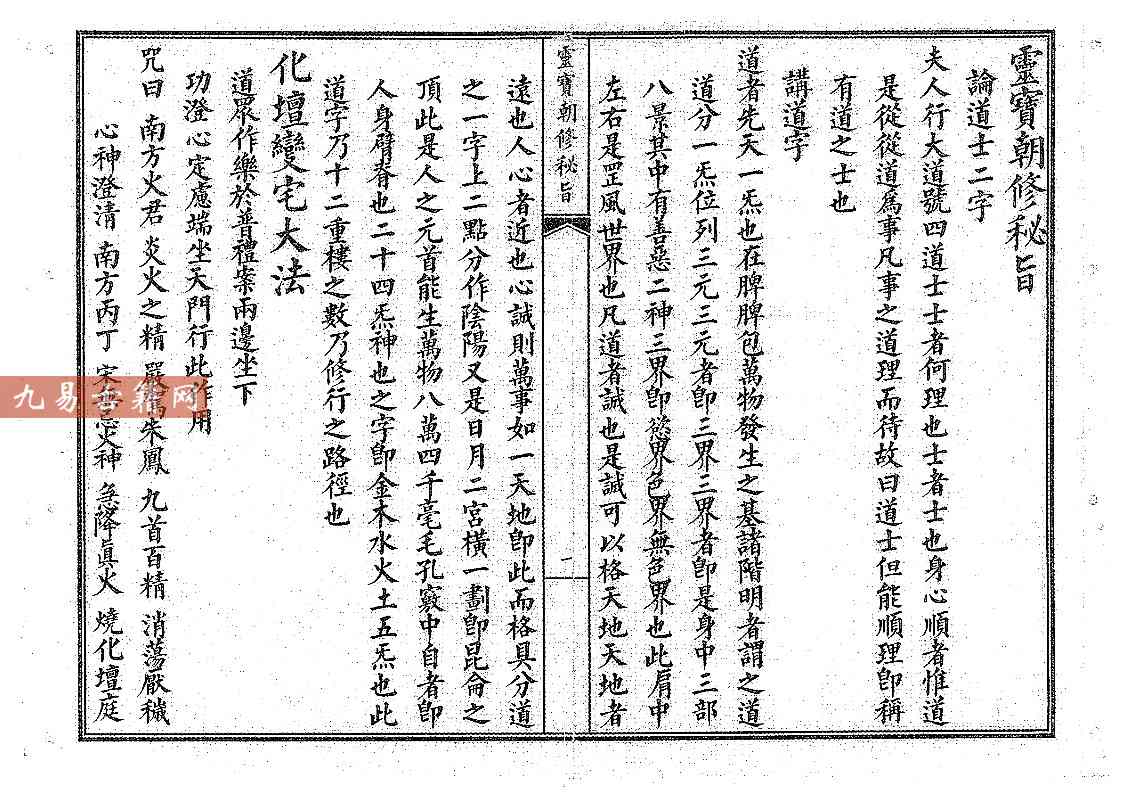 靈寶朝修秘旨
論道士二字
夫人行大道號四道士士者何理也士者士也身心順者惟道
是從從道爲事凡事之道理而待故曰道士但能順理卽稱
有道之士也
講道字
道者先天一炁也在脾脾包萬物發生之基諸階明者謂之道
道分一炁位列三元三元者卽三界三界者卽是身中三部
八景其中有善惡二神三界卽慾界色界無色界也此肩中
左右是罡風世界也凡道者誠也是誠可以格天地天地者
靈寶朝修秘旨
一
遠也人心者近也心誠則萬事如一天地卽此而格具分道
之一字上二點分作陰陽又是日月二宮橫一劃卽昆侖之
頂此是人之元首能生萬物八萬四千毫毛孔竅中自者卽
人身臂脊也二十四炁神也之字卽金木水火土五炁也此
道字乃十二重樓之數乃修行之路徑也
化壇變宅大法
道眾作樂於普禮案兩邊坐下
功澄心定慮端坐天門行此作用
咒曰 南方火君 炎火之精 朱鳳 九首百精 消蕩厭穢
心神澄清 南方丙丁 宋無忌火神 急降眞火 燒化壇庭
九易古籍网